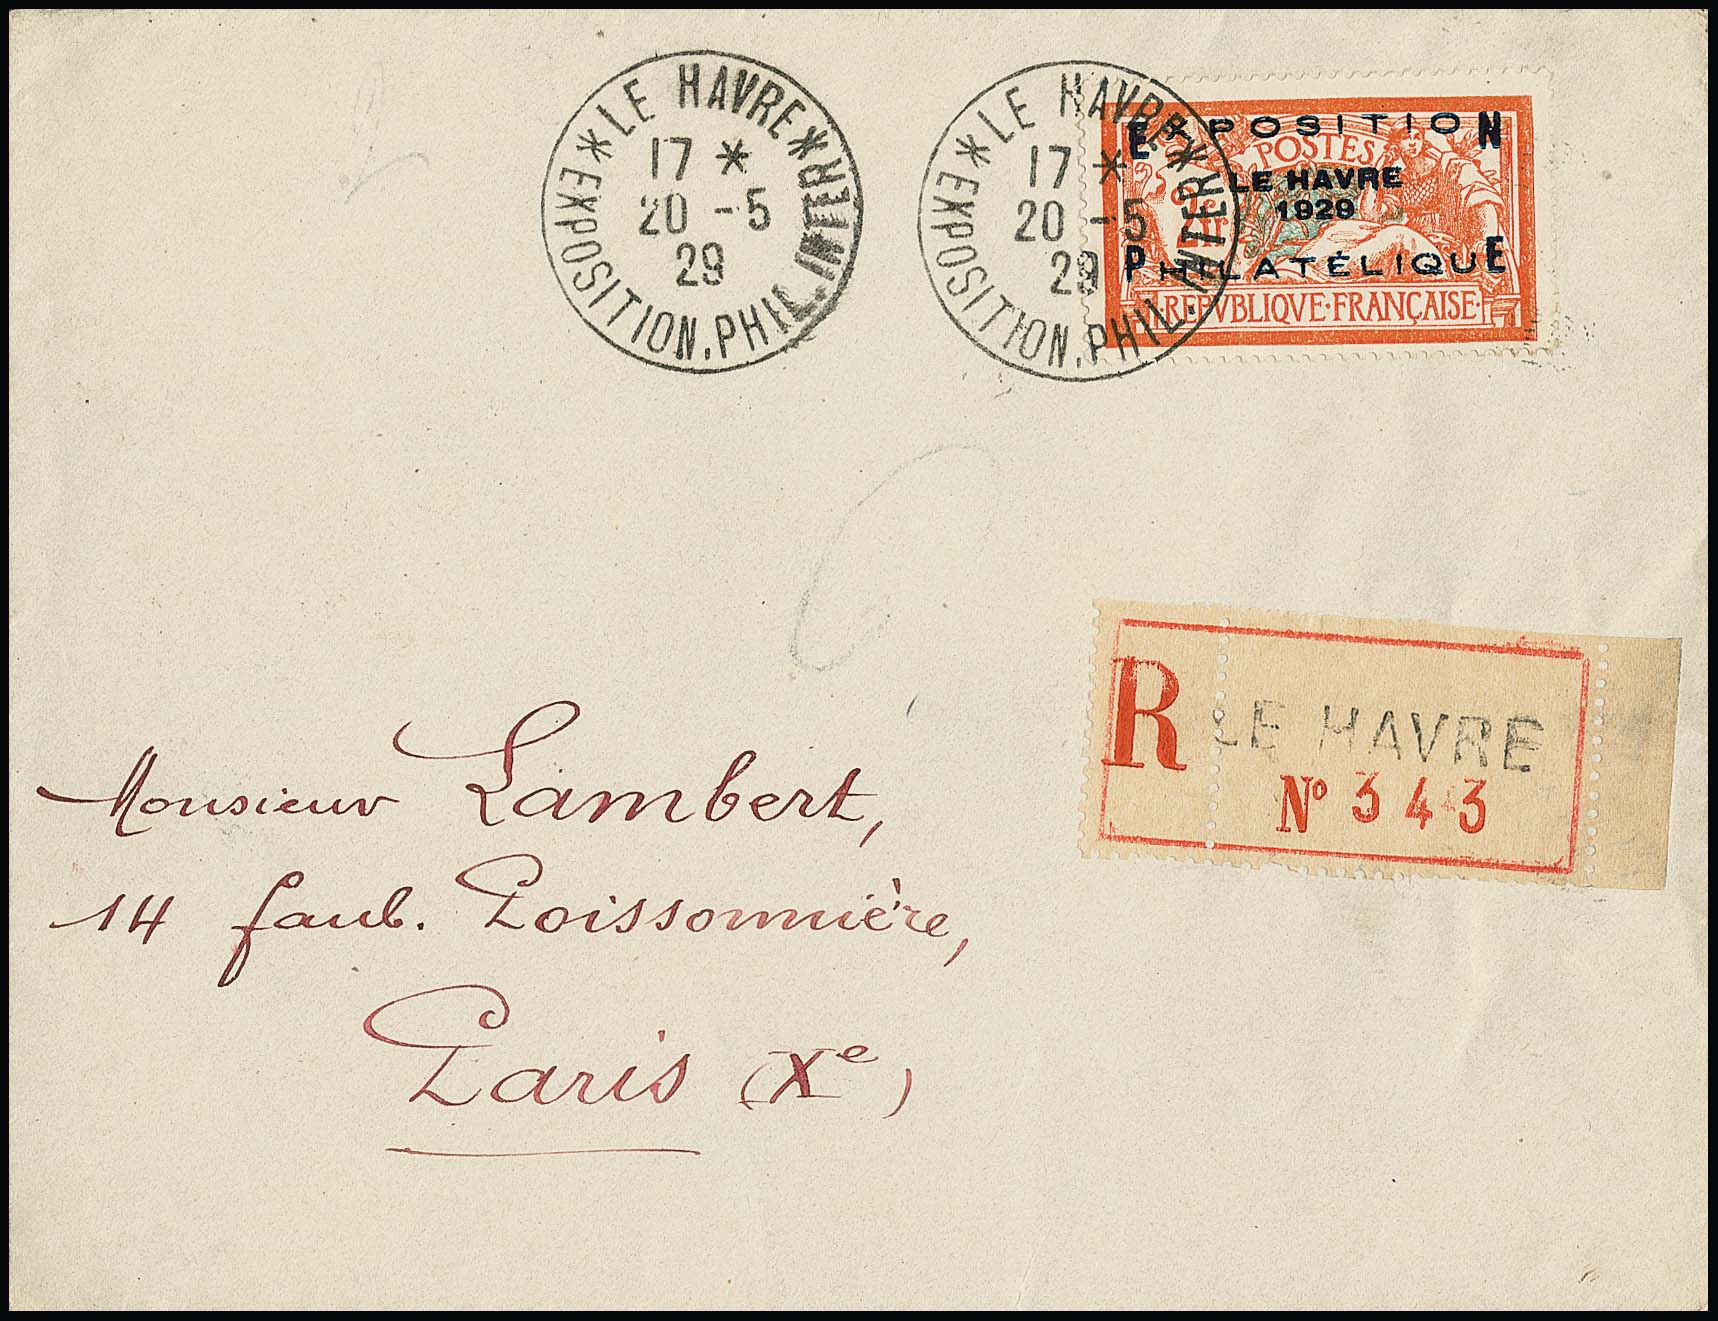 LE HAVRE
17 *
20 - 5
29
EXPOSITION.PHIL.INTER
LE HAVRE
17 *
20 - 5
29
EXPOSITION.PHIL.INTER
EXPOSITION
POSTES
LE HAVRE
1929
2fr
PHILATÉLIQUE
REPVBLIQVE·FRANÇAISE
R LE HAVRE
Nº 343
Monsieur Lambert,
14 faub. Poissonnière,
Paris (Xe)